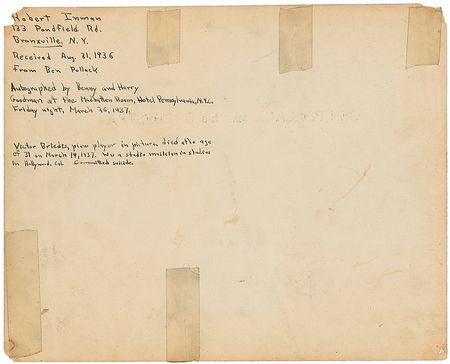 Robert Inman
133 Pondfield Rd.
Bronxville, N.Y.
Received Aug. 31, 1936
From Ben Pollack
Autographed by Benny and Harry
Goodman at the Manhattan Room, Hotel Pennsylvania, N.Y.C.
Friday night, March 26, 1937.
Victor Briedis, piano player in picture, died at the age
of 31 on March 14, 1937. Was a studio musician in studios
in Hollywood, Cal. Committed suicide.